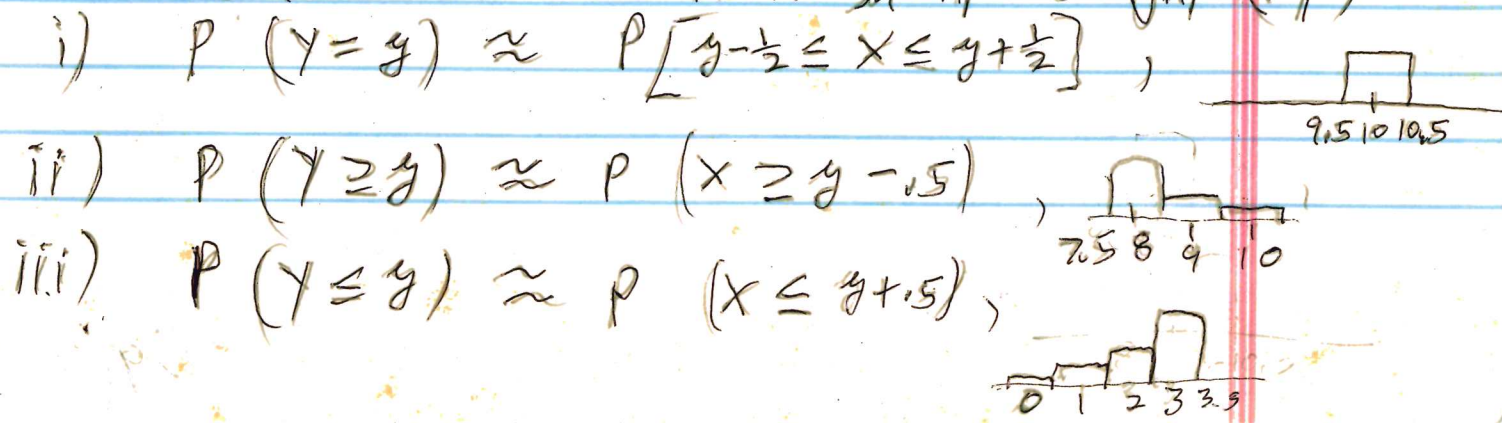 i) P (Y = y) ≈ P[y-½ ≤ X ≤ y+½] ,
9.5 10 10.5
ii) P (Y ≥ y) ≈ P (X ≥ y -.5) ,
7.5 8 9 10
iii) P (Y ≤ y) ≈ P (X ≤ y+.5) ,
0 1 2 3 3.5